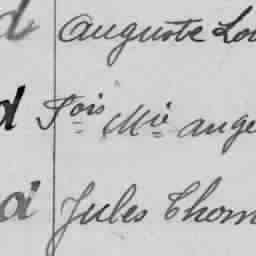 d Auguste Lou
d Fois Mie ange
d Jules Thom